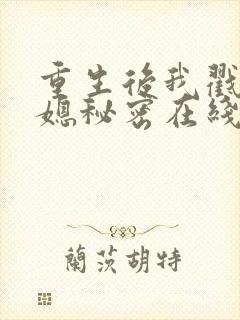 重生後我戳
媳秘密在綫
蘭茨胡特